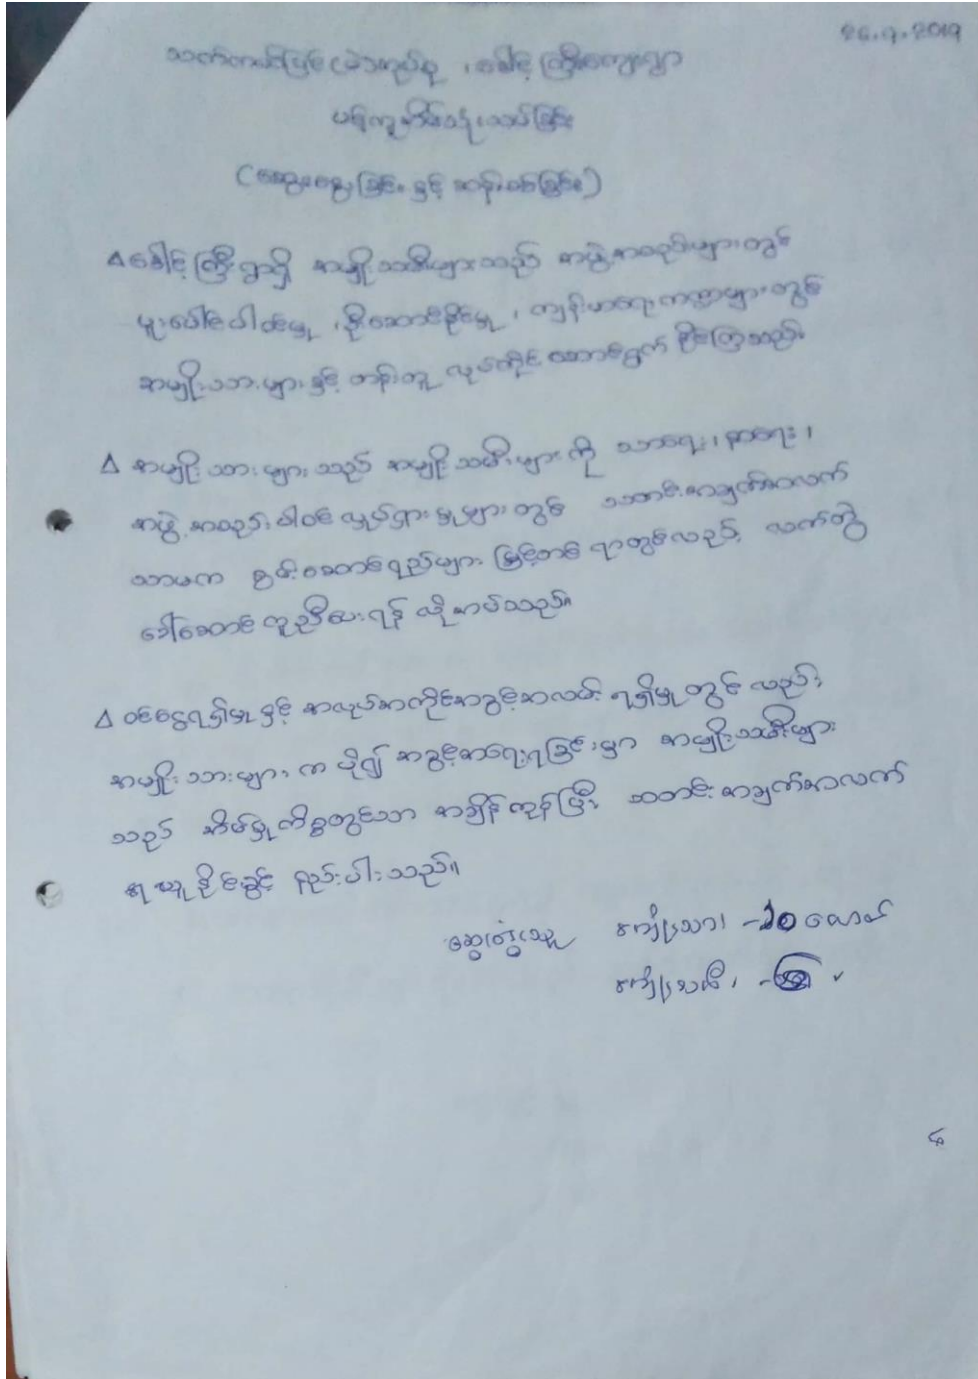 26.9.2019
သက်ကယ်ပြင် ၊ ခေါင့်ကြီးကျေးရွာ
ပရိုဂျက်သုံးသပ်ခြင်း
(ဆွေးနွေးခြင်း နှင့် ဆန်းစစ်ခြင်း)
Δ ခေါင့်ကြီးရွာရှိ အမျိုးသမီးများသည် အဖွဲ့အစည်းများတွင်
ပူးပေါင်းပါဝင်မှု ၊ ဦးဆောင်နိုင်မှု ၊ ကျန်းမာရေးကဏ္ဍများတွင်
အမျိုးသားများနှင့် တန်းတူ လုပ်ကိုင် ဆောင်ရွက် နိုင်ကြသည်။
Δ အမျိုးသားများသည် အမျိုးသမီးများကို သာရေး၊ နာရေး၊
အဖွဲ့အစည်းပါဝင် လှုပ်ရှားမှုများတွင် သတင်းအချက်အလက်
သာမက စွမ်းဆောင်ရည်များ မြှင့်တင်ရာတွင်လည်း လက်တွဲ
ခေါ်ဆောင် ကူညီပေးရန် လိုအပ်သည်။
Δ ဝင်ငွေရရှိမှုနှင့် အလုပ်အကိုင်အခွင့်အလမ်း ရရှိမှုတွင် လည်း
အမျိုးသားများ က ပို၍ အခွင့်အရေးရခြင်းမှာ အမျိုးသမီးများ
သည် အိမ်မှုကိစ္စတွင်သာ အချိန်ကုန်ပြီး သတင်းအချက်အလက်
ရယူနိုင်ခွင့် နည်းပါးသည်။
ဆွေးနွေးသူ ကျား - ၁၀ ယောက်